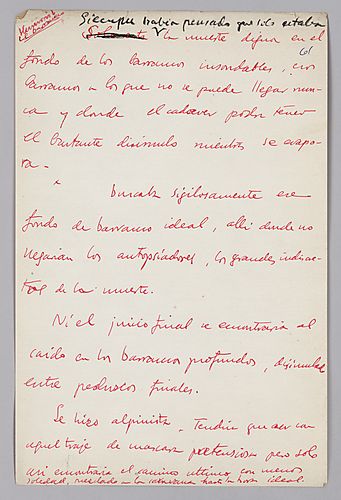 Siempre había pensado que solo estaba
la muerte digna en el
61
fondo de los barrancos insondables, esos
barrancos a los que no se puede llegar nun-
ca y donde el cadaver podra tener
el bastante disimulo mientras se evapo-
ra.
Buscaba sigilosamente ese
fondo de barranco ideal, alli donde no
llegarian los autopsiadores, los grandes
de la muerte.
Ni el juicio final se encontraria al
caido en los barrancos profundos, disimulado
entre pedruscos finales.
Se hizo alpinista. Tendria que ser con
aquel traje de mascara pretensiosa pero solo
asi encontraria el camino ultimo con menos
soledad, mezclado a la caravana hasta la hora ideal.